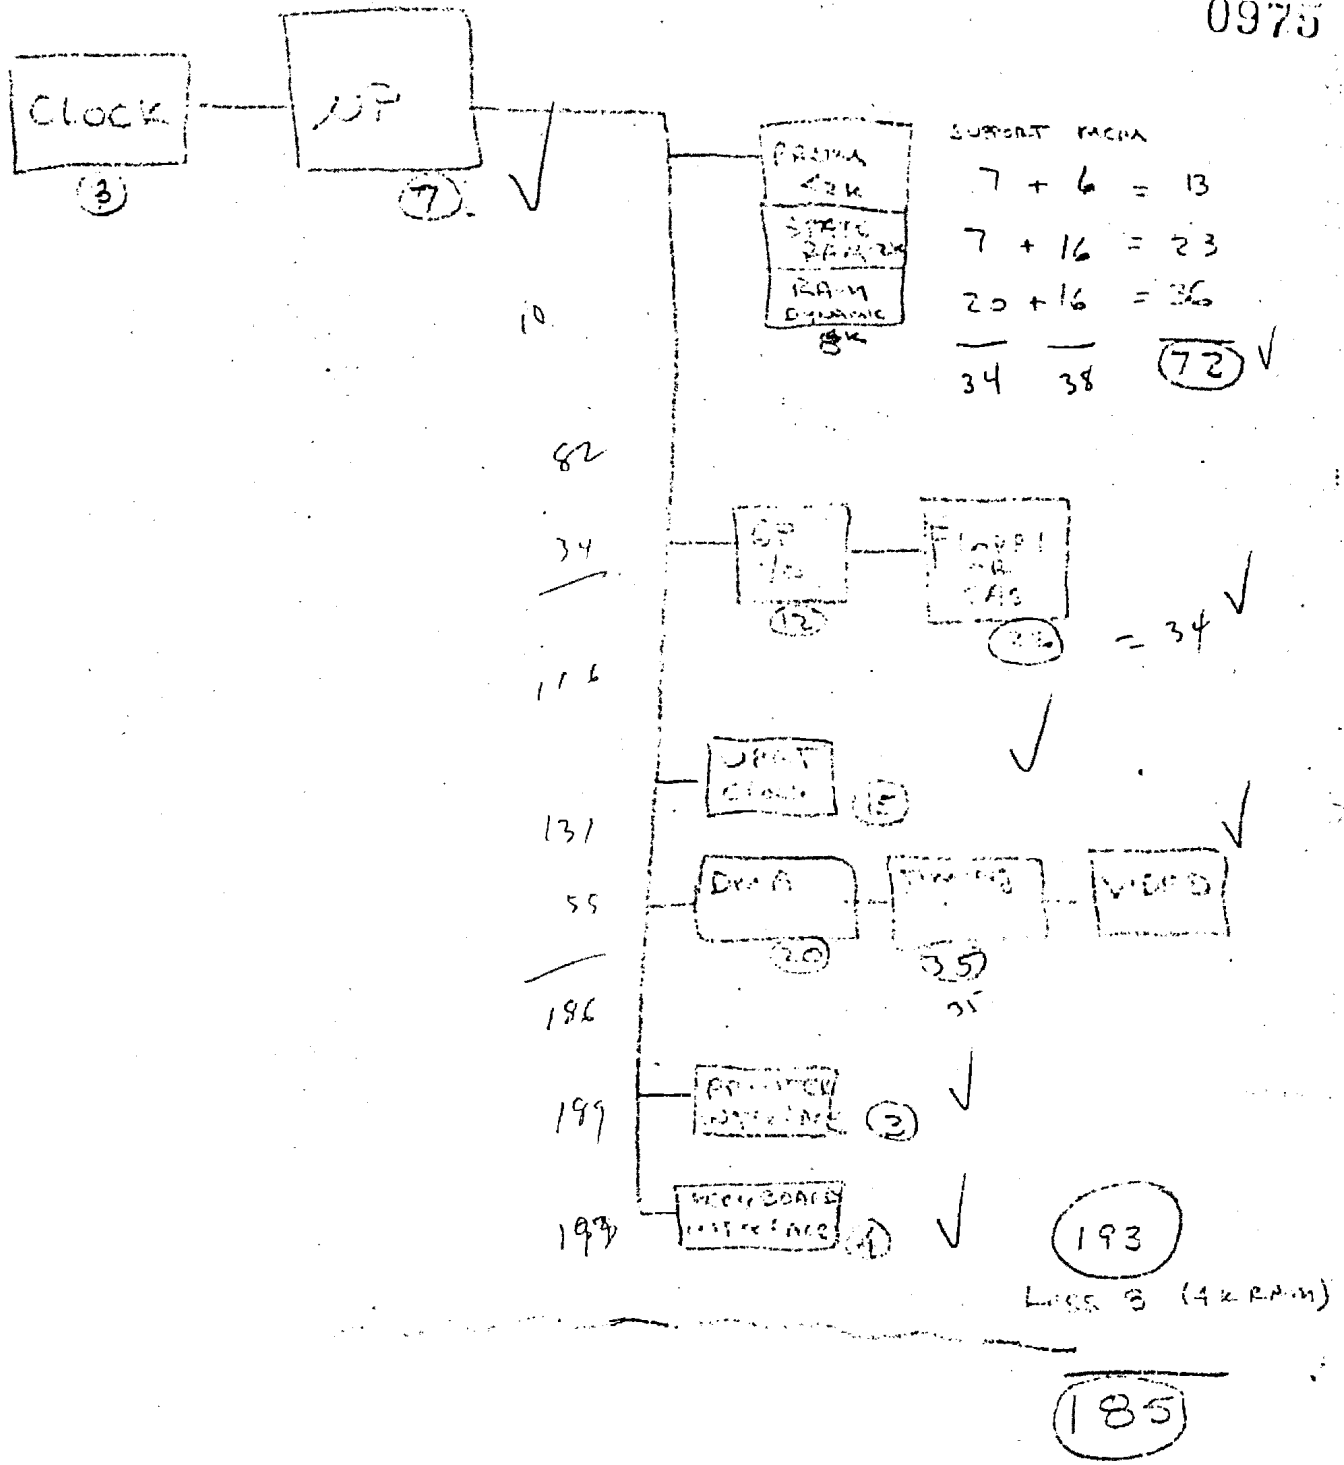 0975
CLOCK
3
μP
7
SUPPORT
PROM
<2K
7 + 6 = 13
STATIC
RAM 2K
7 + 16 = 23
RAM
DYNAMIC
8K
20 + 16 = 36
34 38 72
10
82
34
116
131
55
186
189
193
GP
I/O
12
FLOPPY
OR
CAS
22
= 34
UART
CLOCK
15
DMA
20
TIMING
35
35
VIDEO
PRINTER
INTERFACE
3
KEYBOARD
INTERFACE
4
193
LESS 8 (4K RAM)
185